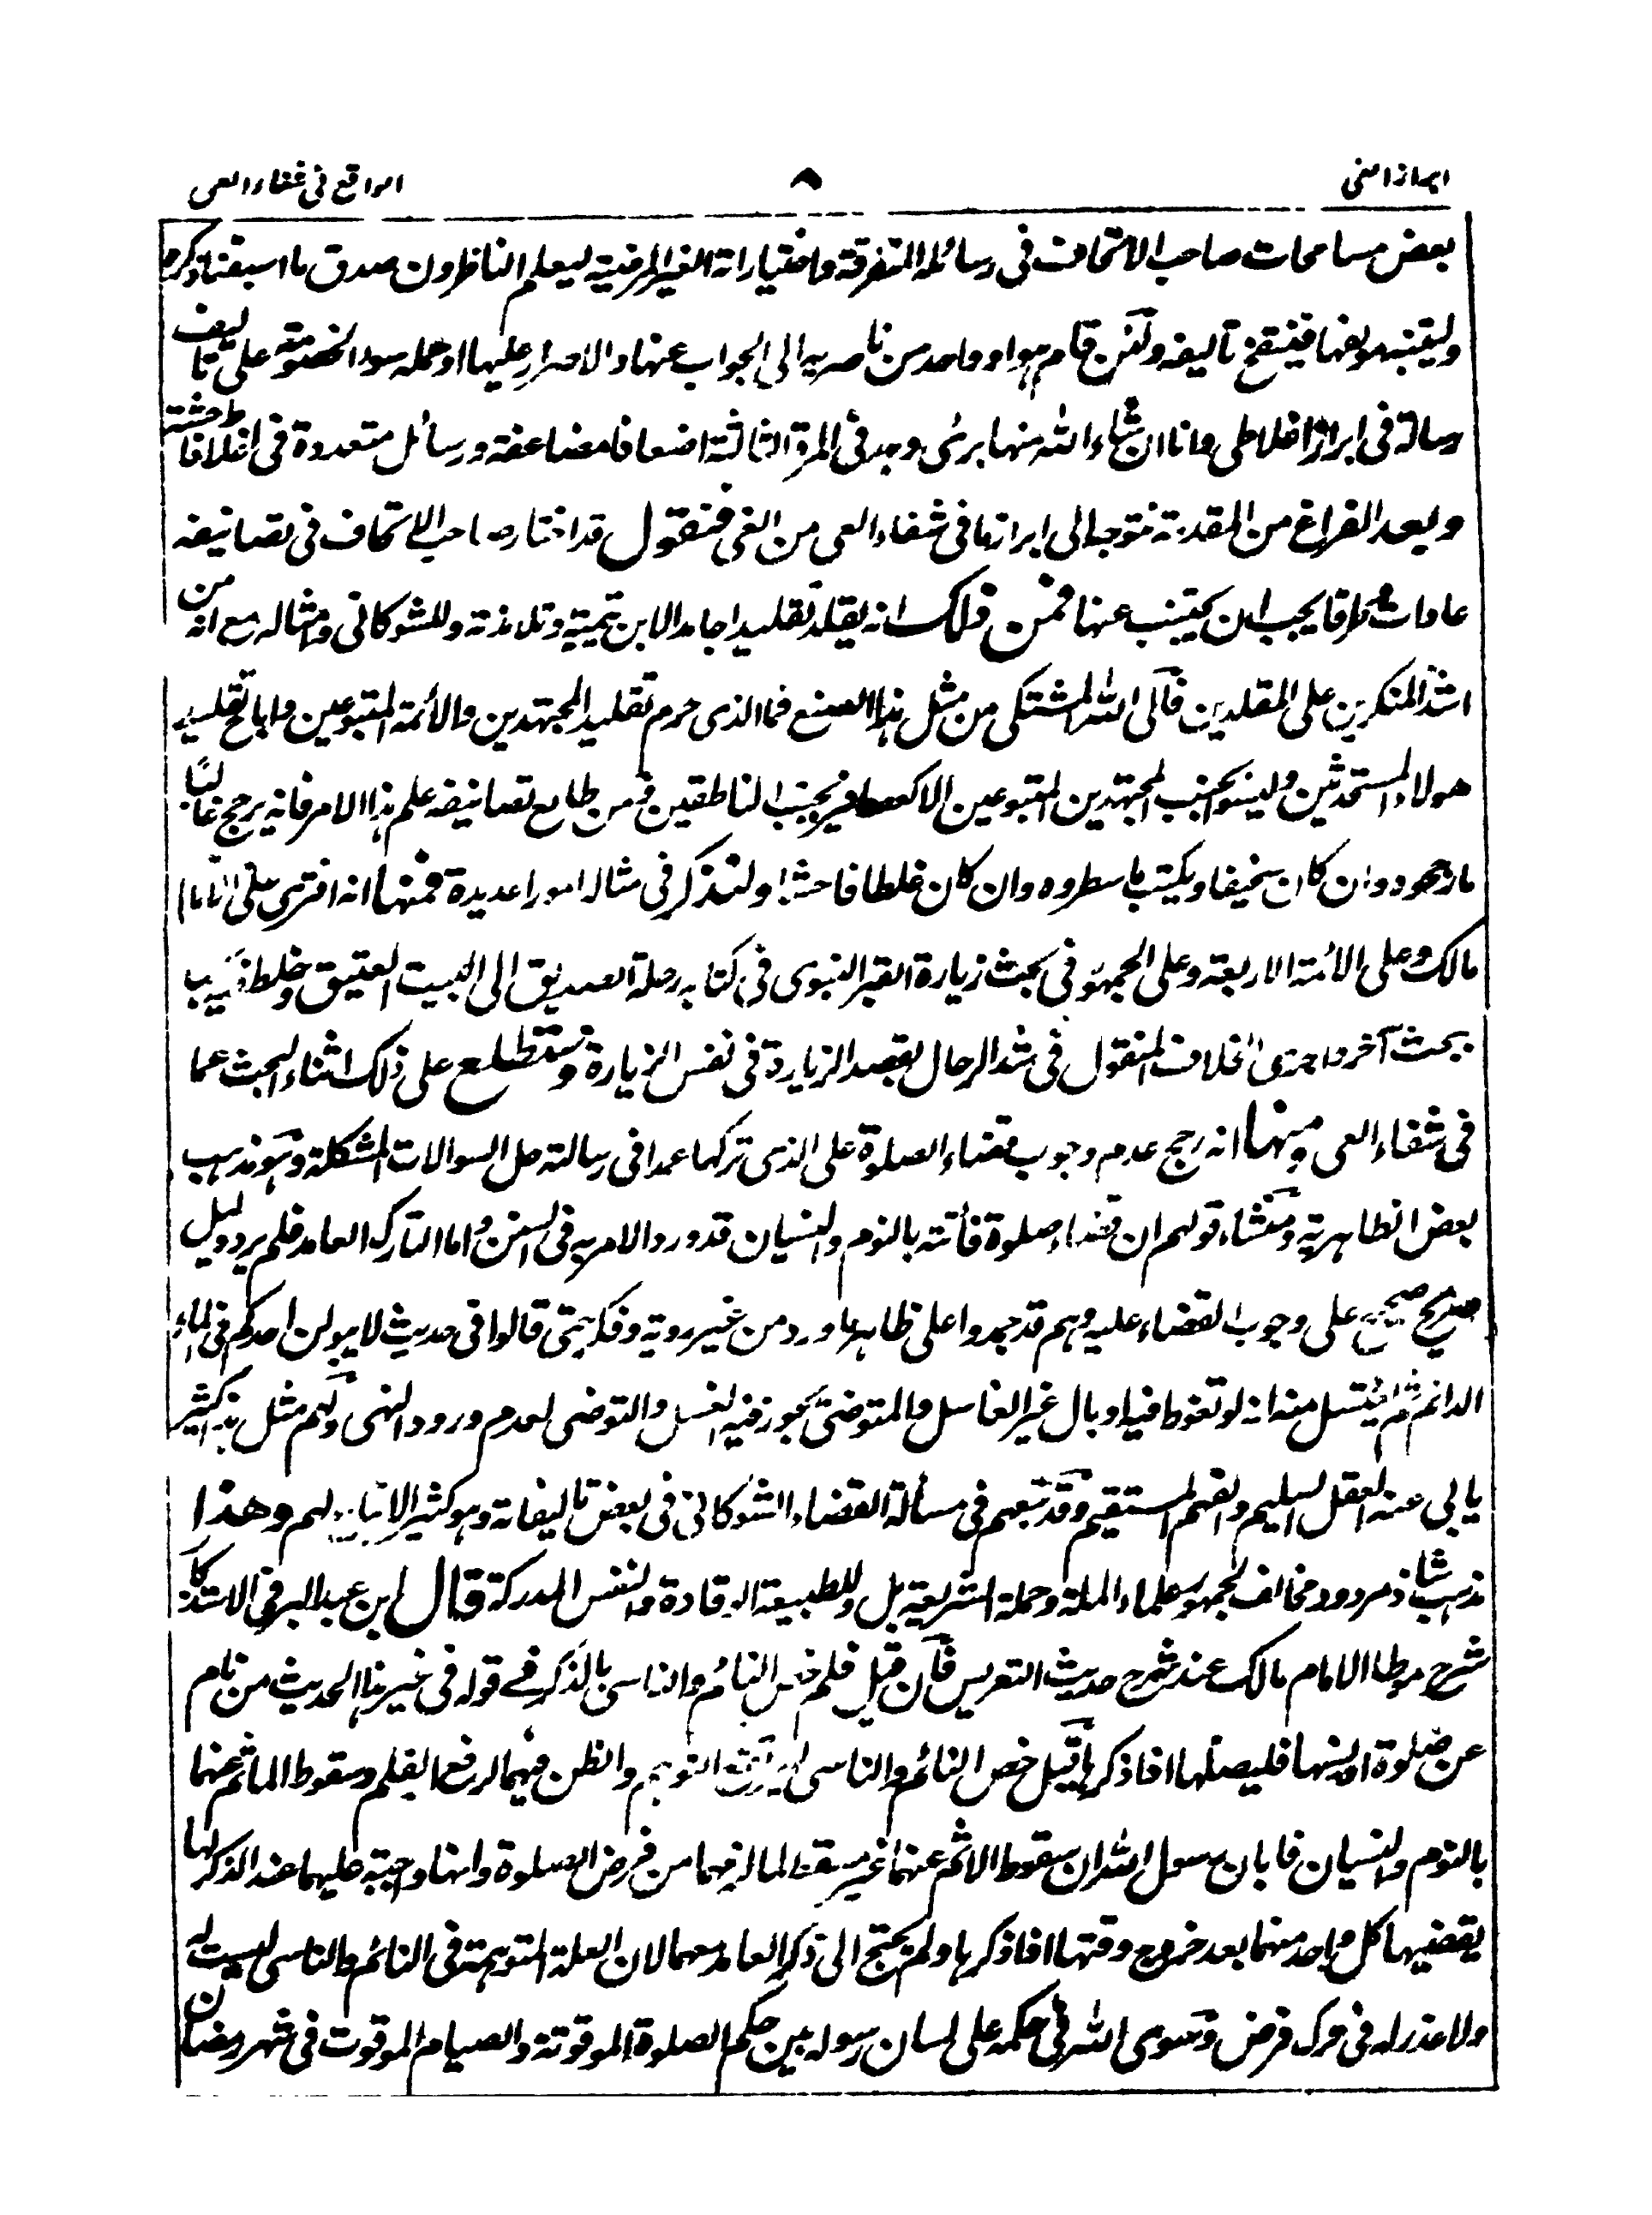 ابراز الغي
٨
الواقع في شفاء العي
بعض مسامحات صاحب الاتحاف في رسائله المتفرقة واختياراته الغير المرضية ليعلم الناظرون صدق ما اسبقنا ذكره
وليتنبه مولفها فينقح تأليفه ولئن قام هو او واحد من ناصريه الى الجواب عنها والاصرار عليها او حمله سوء الخصومة على تاليف
رسالة في ابراز اغلاطي وانا ان شاء الله منها برئ وجد في المرة الثالثة اضعافا مضاعفة ورسائل متعددة في اغلاطه الفاحشة
وبعد الفراغ من المقدمة نتوجه الى ابراز ما في شفاء العي من الغي فنقول قد اختار صاحب الاتحاف في تصانيفه
عادات وطرقا يجب ان يجتنب عنها فمن ذلك انه يقلد تقليدا جامدا لابن تيمية وتلامذته وللشوكاني وامثاله مع انه من
اشد المنكرين على المقلدين فالى الله المشتكى من مثل هذا الصنع فما الذي حرم تقليد المجتهدين والأئمة المتبوعين واباح تقليد
هولاء المستحدثين وليسوا بجنب المجتهدين المتبوعين الا كعصافير بجنب الناطقين فمن طالع تصانيفه علم هذا الامر فانه يرجح غالبا
ما رجحوه وان كان سخيفا ويكتب ما سطروه وان كان غلطا فاحشا ولنذكر في مثاله امورا عديدة فمنها انه افترى على الامام
مالك وعلى الائمة الاربعة وعلى الجمهور في بحث زيارة القبر النبوي في كتابه رحلة الصديق الى البيت العتيق وخلط
ببحث آخر واجرى الخلاف المنقول في شد الرحال بقصد الزيارة في نفس الزيارة وستطلع على ذلك اثناء البحث عما
في شفاء العي ومنها انه رجح عدم وجوب قضاء الصلوة على الذي تركها عمدا في رسالته حل السوالات المشكلة وهو مذهب
بعض الظاهرية ومنشاء قولهم ان قضاء صلوة فائتة بالنوم والنسيان قد ورد الامر به في السنن واما التارك العامد فلم يرد دليل
صريح صحيح على وجوب القضاء عليه وهم قد جمدوا على ظاهر ما ورد من غير روية وفكر حتى قالوا في حديث لا يبولن احدكم في الماء
الدائم ثم يغتسل منه انه لو تغوط فيه او بال غير الغاسل والمتوضئ يجوز فيه الغسل والتوضي لعدم ورود النهي ولهم مثل هذا كثير
يابى عنه العقل السليم والفهم المستقيم وقد تبعهم في مسألة القضاء الشوكاني في بعض تاليفاته وهو كثير الاتباع لهم وهذا
مذهب شاذ مردود مخالف لجمهور علماء الملة وحملة الشريعة بل وللطبيعة الوقادة والنفس المدركة قال ابن عبد البر في الاستذكار
شرح موطا الامام مالك عند شرح حديث التعريس فان قيل فلم خص النائم والناسي بالذكر في قوله في غير هذا الحديث من نام
عن صلوة او نسيها فليصلها اذا ذكرها قيل خص النائم والناسي ليرتفع التوهم والظن فيهما لرفع القلم وسقوط الماثم عنهما
بالنوم والنسيان فابان رسول الله ان سقوط الاثم عنهما غير مسقط لما لزمهما من فرض الصلوة وانها واجبة عليهما عند الذكر لها
يقضيها كل واحد منهما بعد خروج وقتها اذا ذكرها ولم يحتج الى ذكر العامد معهما لان العلة المتوهمة في النائم والناسي ليست له
ولا عذر له في ترك فرض وسوى الله في حكمه على لسان رسوله بين حكم الصلوة الموقوتة والصيام الموقوت في شهر رمضان